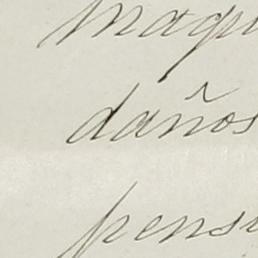 maqui
daños
pensi